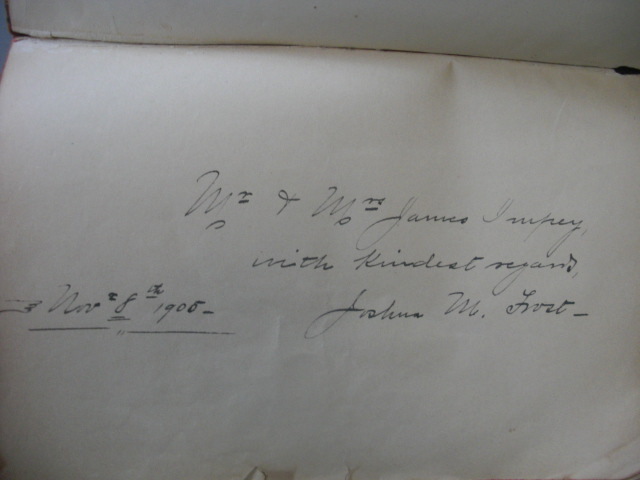 Mr & Mrs James Impey,
with Kindest regards,
Novr 8th 1905-
Joshua M. Frost-